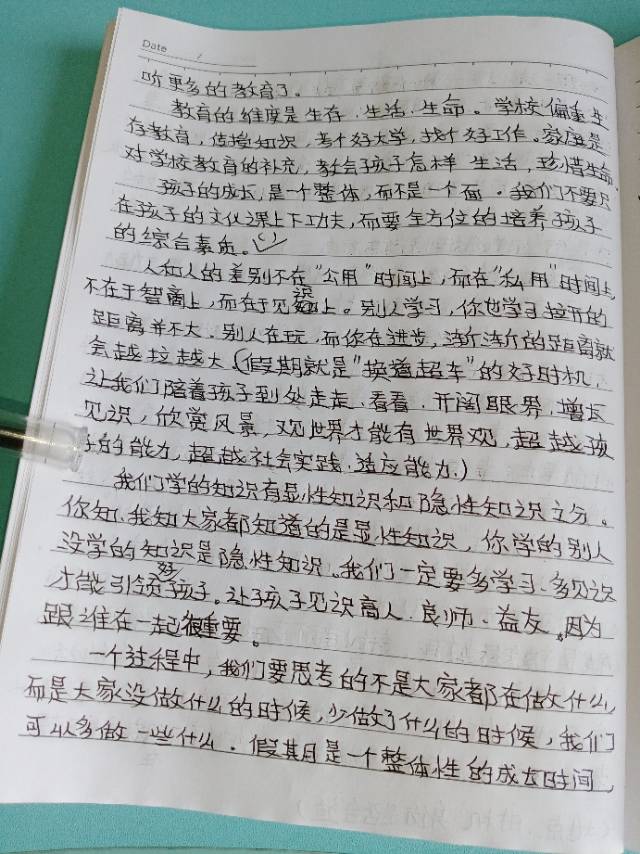 Date
听更多的教育了。
教育的维度是生存、生活、生命。学校偏重生
存教育，传授知识，考个好大学，找个好工作。家庭是
对学校教育的补充，教会孩子怎样生活，珍惜生命。
孩子的成长，是一个整体，而不是一个面。我们不要只
在孩子的文化课上下功夫，而要全方位的培养孩子
的综合素质。
人和人的差别不在“公用”时间上，而在“私用”时间上，
不在于智商上，而在于见识上。别人学习，你也学习拉开的
距离并不大。别人在玩，而你在进步，渐渐的距离就
会越拉越大（假期就是“换道超车”的好时机，
让我们陪着孩子到处走走、看看，开阔眼界，增长
见识，欣赏风景，观世界才能有世界观，超越孩
子的能力，超越社会实践、适应能力。）
我们学的知识有显性知识和隐性知识之分。
你知、我知大家都知道的是显性知识，你学的别人
没学的知识是隐性知识。我们一定要多学习、多见识
才能引领好孩子。让孩子见识高人、良师、益友。因为
跟谁在一起很重要。
一个过程中，我们要思考的不是大家都在做什么，
而是大家没做什么的时候，少做了什么的时候，我们
可以多做一些什么。假期是一个整体性的成长时间，